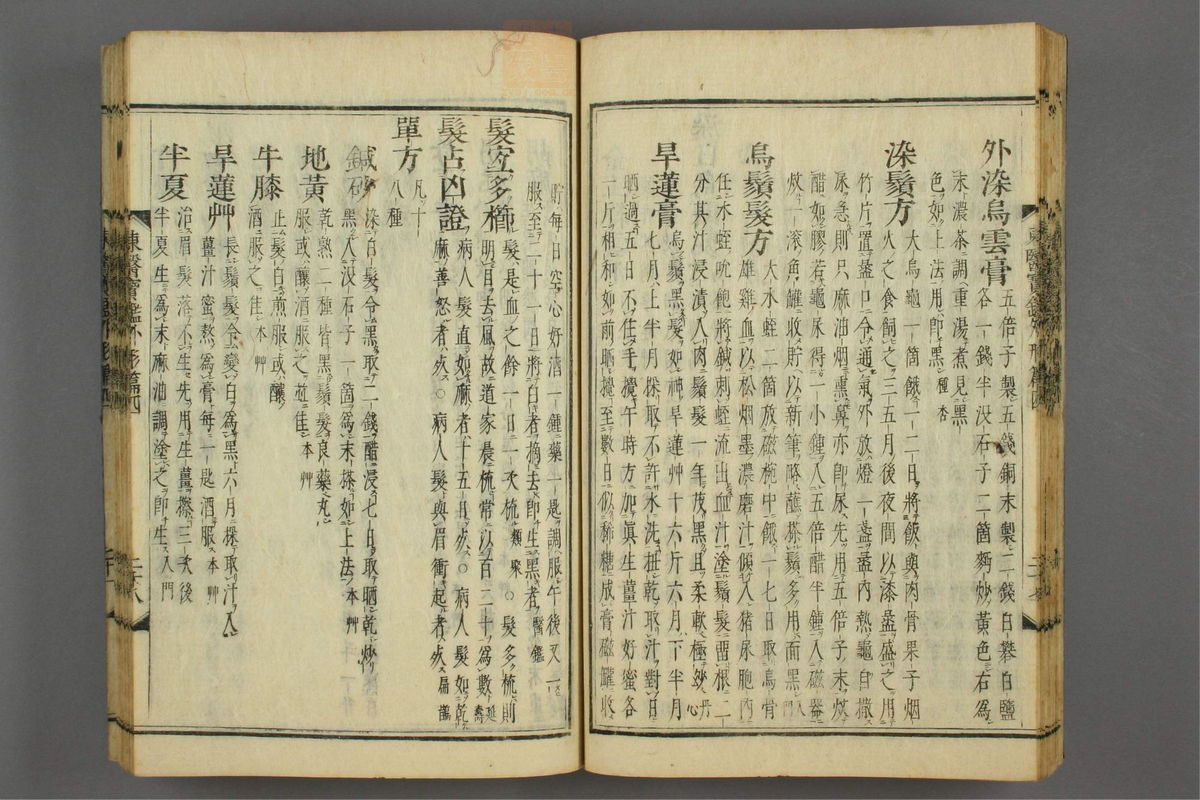 外染烏雲膏五倍子製五錢銅末製二錢白礬白鹽
各一錢半没石子二箇麪炒黃色右爲
末濃茶調重湯煮見黑
色如上法用卽黑種杏
染鬚方大烏龜一箇餓一二日將飯與肉骨果子烟
火之食飼之三五月後夜間以漆盝盛之用
竹片置盝口令通氣外放燈一盞盝內熱龜自撒
尿急則只麻油烟熏鼻亦卽尿先用五倍子末炆
醋如膠若龜尿得一小鍾入五倍醋半鍾入磁器
炆滾角罐收貯以新筆略蘸搽鬚多用面黑入門
烏鬚髮方大水蛭二箇放磁椀中餓一七日取烏骨
雄雞血以松烟墨濃磨汁傾入猪尿胞內
任水蛭吮飽將鍼刺蛭流出血汁塗鬚髮留根二
分其汁浸漬入肉鬚髮一年茂黑且柔軟極玅丹心
旱蓮膏烏鬚黑髮如神旱蓮艸十六斤六月下半月
七月上半月採取不許水洗扭乾取汁對日
晒過五日不住手攪午時方加眞生薑汁好蜜各
一斤相和如前晒攪至數日似稀糖成膏磁罐收
貯每日空心好酒一鍾藥一匙調服午後又一
服至二十一日將白者摘去卽生黑者醫鑑
髮宜多櫛髮是血之餘一日一次梳類聚○髮多梳則
明目去風故道家晨梳常以百二十爲數延壽
髮占凶證病人髮直如麻者十五日死○病人髮如乾
麻善怒者死○病人髮與眉衝起者死扁鵲
單方凡十八種
鍼砂染白髮令黑取二錢醋浸七日取晒乾炒
石黑入没石子一箇爲末搽如上法本艸
地黃乾熟二種皆黑鬚髮良藥丸
服或釀酒服之竝佳本艸
牛膝止髮白煎服或釀
酒服之佳本艸
旱蓮艸長鬚髮令變白爲黑六月採取汁入
薑汁蜜熬爲膏每一匙酒服本艸
半夏治眉髮落不生先用生薑擦三次後
半夏生爲末麻油調塗之卽生入門
東醫寶鑑外形篇四